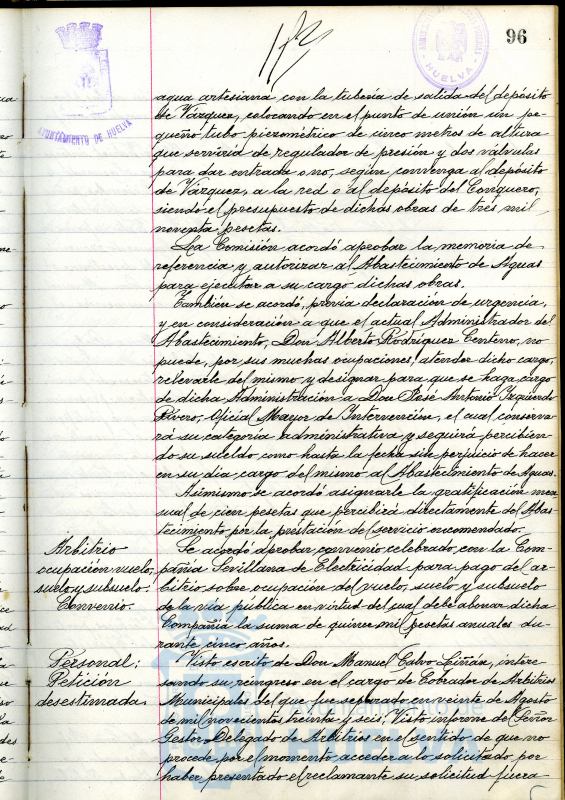 96
AYUNTAMIENTO DE HUELVA
HUELVA
agua artesiana con la tubería de salida del depósito
de Vázquez, colocando en el punto de unión un pe-
queño tubo piezométrico de cinco metros de altura
que serviría de regulador de presión y dos válvulas
para dar entrada o no, según convenga al depósito
de Vázquez, a la red o al depósito del Conquero,
siendo el presupuesto de dichas obras de tres mil
noventa pesetas.
La Comisión acordó aprobar la memoria de
referencia y autorizar al Abastecimiento de Aguas
para ejecutar a su cargo dichas obras.
También se acordó, previa declaración de urgencia,
y en consideración a que el actual Administrador del
Abastecimiento, Don Alberto Rodríguez Centeno, no
puede, por sus muchas ocupaciones, atender dicho cargo,
relevarle del mismo y designar para que se haga cargo
de dicha Administración a Don José Antonio Izquierdo
Rivero, Oficial Mayor de Intervención, el cual conserva-
rá su categoría administrativa y seguirá percibien-
do su sueldo como hasta la fecha sin perjuicio de hacer
en su día cargo del mismo al Abastecimiento de Aguas.
Asimismo se acordó asignarle la gratificación men-
sual de cien pesetas que percibirá directamente del Abas-
tecimiento por la prestación del servicio encomendado.
Arbitrio
ocupación vuelo,
suelo y subsuelo:
Convenio.
Se acordó aprobar convenio celebrado con la Com-
pañía Sevillana de Electricidad para pago del ar-
bitrio sobre ocupación del vuelo, suelo y subsuelo
de la vía pública en virtud del cual debe abonar dicha
Compañía la suma de quince mil pesetas anuales du-
rante cinco años.
Personal:
Petición
desestimada.
Visto escrito de Don Manuel Calvo Liñán, intere-
sando su reingreso en el cargo de Cobrador de Arbitrios
Municipales del que fue separado en veinte de Agosto
de mil novecientos treinta y seis. Visto informe del Señor
Gestor Delegado de Arbitrios en el sentido de que no
procede por el momento acceder a lo solicitado por
haber presentado el reclamante su solicitud fuera
Ayuntamiento de
HUELVA